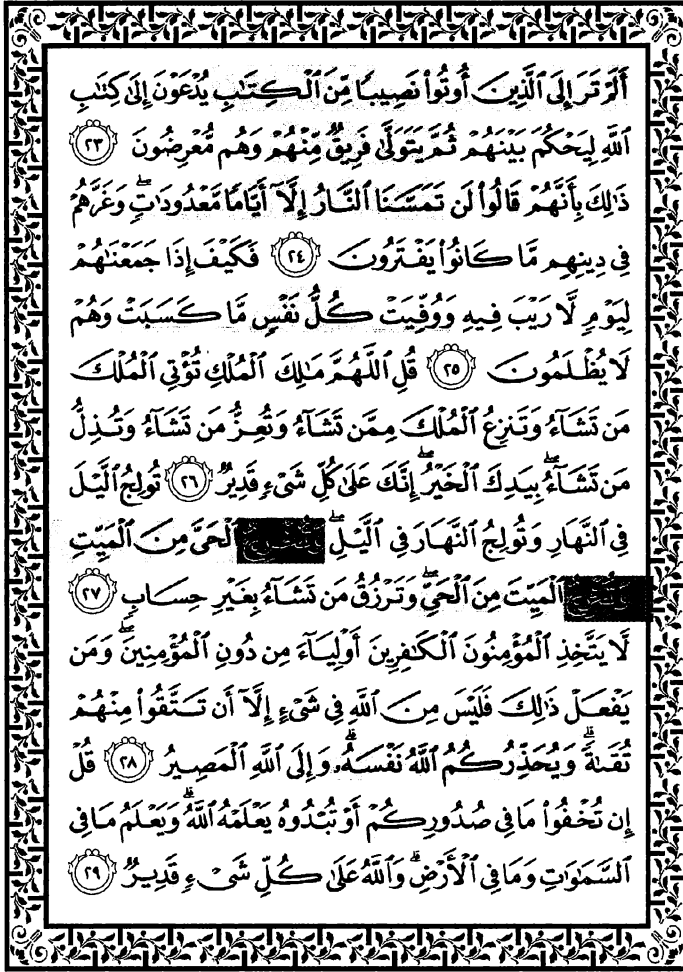 أَلَمْ تَرَ إِلَى ٱلَّذِينَ أُوتُوا۟ نَصِيبًا مِّنَ ٱلْكِتَٰبِ يُدْعَوْنَ إِلَىٰ كِتَٰبِ
ٱللَّهِ لِيَحْكُمَ بَيْنَهُمْ ثُمَّ يَتَوَلَّىٰ فَرِيقٌ مِّنْهُمْ وَهُم مُّعْرِضُونَ ٢٣
ذَٰلِكَ بِأَنَّهُمْ قَالُوا۟ لَن تَمَسَّنَا ٱلنَّارُ إِلَّآ أَيَّامًا مَّعْدُودَٰتٍ ۖ وَغَرَّهُمْ
فِى دِينِهِم مَّا كَانُوا۟ يَفْتَرُونَ ٢٤ فَكَيْفَ إِذَا جَمَعْنَٰهُمْ
لِيَوْمٍ لَّا رَيْبَ فِيهِ وَوُفِّيَتْ كُلُّ نَفْسٍ مَّا كَسَبَتْ وَهُمْ
لَا يُظْلَمُونَ ٢٥ قُلِ ٱللَّهُمَّ مَٰلِكَ ٱلْمُلْكِ تُؤْتِى ٱلْمُلْكَ
مَن تَشَآءُ وَتَنزِعُ ٱلْمُلْكَ مِمَّن تَشَآءُ وَتُعِزُّ مَن تَشَآءُ وَتُذِلُّ
مَن تَشَآءُ ۖ بِيَدِكَ ٱلْخَيْرُ ۖ إِنَّكَ عَلَىٰ كُلِّ شَىْءٍ قَدِيرٌ ٢٦ تُولِجُ ٱلَّيْلَ
فِى ٱلنَّهَارِ وَتُولِجُ ٱلنَّهَارَ فِى ٱلَّيْلِ ۖ وَتُخْرِجُ ٱلْحَىَّ مِنَ ٱلْمَيِّتِ
وَتُخْرِجُ ٱلْمَيِّتَ مِنَ ٱلْحَىِّ ۖ وَتَرْزُقُ مَن تَشَآءُ بِغَيْرِ حِسَابٍ ٢٧
لَّا يَتَّخِذِ ٱلْمُؤْمِنُونَ ٱلْكَٰفِرِينَ أَوْلِيَآءَ مِن دُونِ ٱلْمُؤْمِنِينَ ۖ وَمَن
يَفْعَلْ ذَٰلِكَ فَلَيْسَ مِنَ ٱللَّهِ فِى شَىْءٍ إِلَّآ أَن تَتَّقُوا۟ مِنْهُمْ
تُقَىٰةً ۗ وَيُحَذِّرُكُمُ ٱللَّهُ نَفْسَهُۥ ۗ وَإِلَى ٱللَّهِ ٱلْمَصِيرُ ٢٨ قُلْ
إِن تُخْفُوا۟ مَا فِى صُدُورِكُمْ أَوْ تُبْدُوهُ يَعْلَمْهُ ٱللَّهُ ۗ وَيَعْلَمُ مَا فِى
ٱلسَّمَٰوَٰتِ وَمَا فِى ٱلْأَرْضِ ۗ وَٱللَّهُ عَلَىٰ كُلِّ شَىْءٍ قَدِيرٌ ٢٩